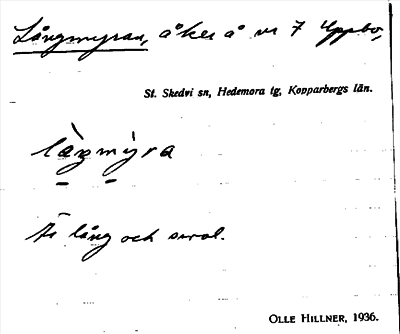 Långmyran, åker å nr 7 Uppbo,
St. Skedvi sn, Hedemora tg, Kopparbergs län.
làŋmỳra
Är lång och smal.
OLLE HILLNER, 1936.